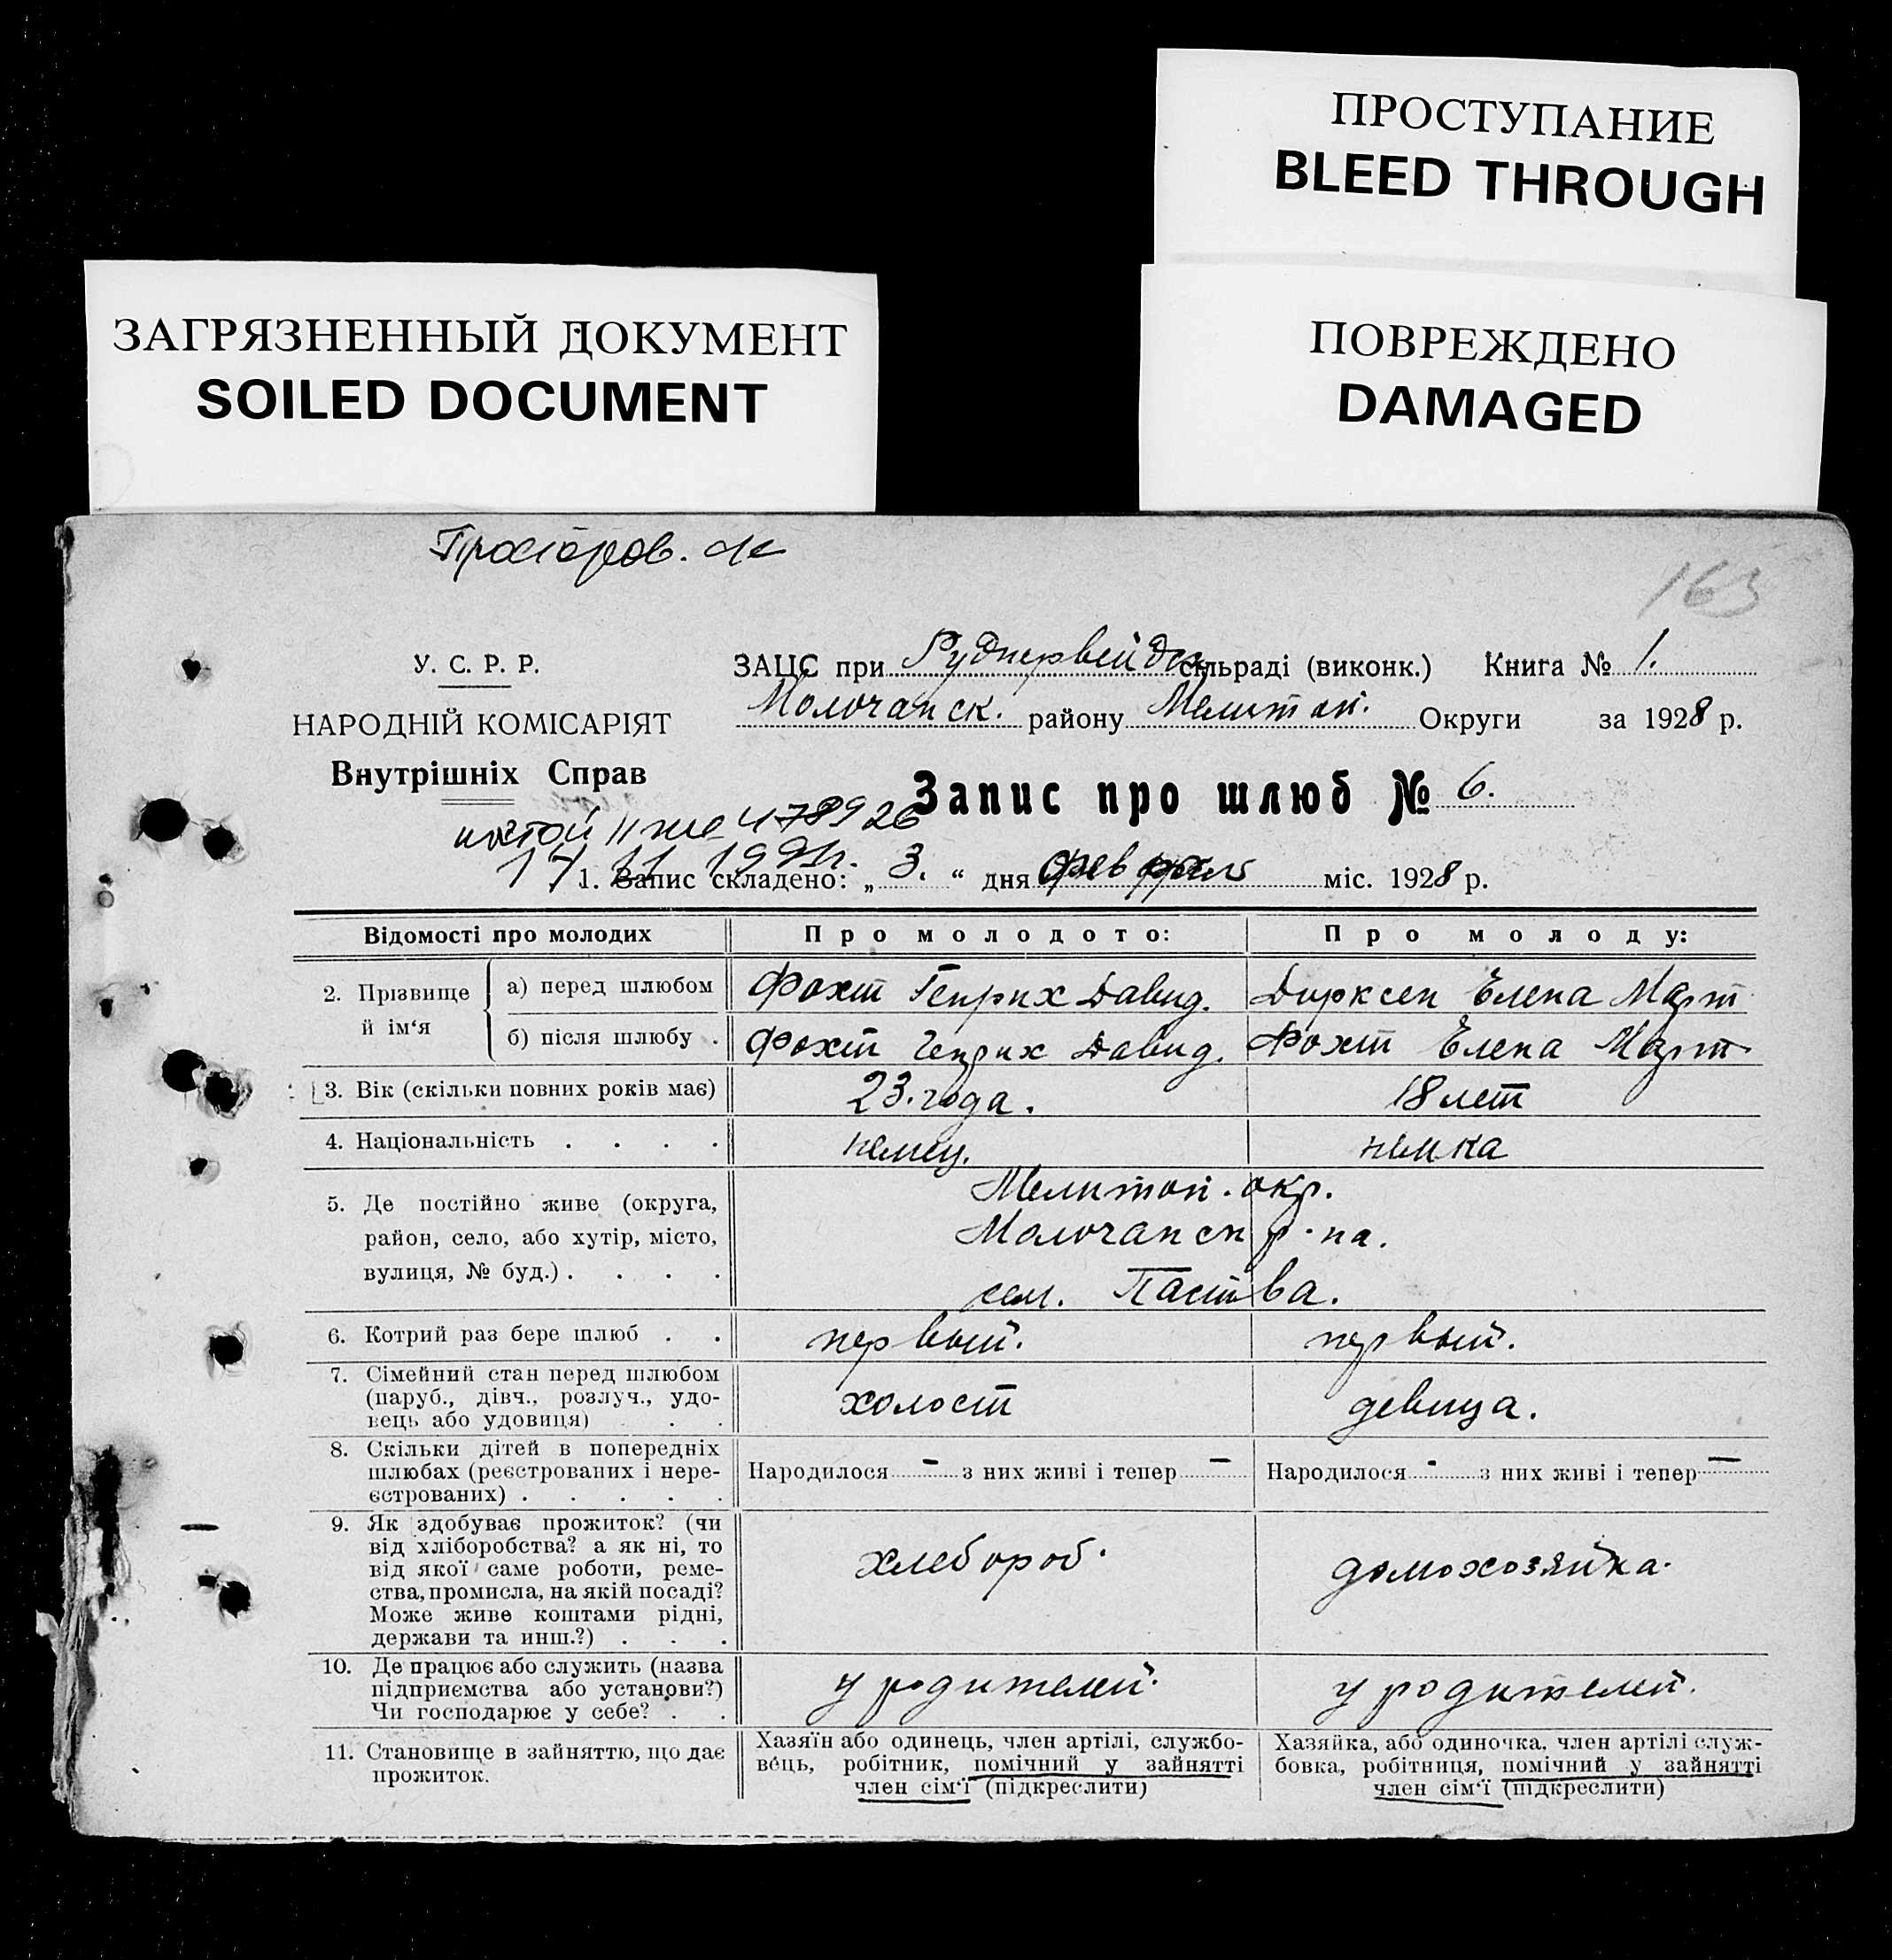 ПРОСТУПАНИЕ
BLEED THROUGH
ЗАГРЯЗНЕННЫЙ ДОКУМЕНТ
SOILED DOCUMENT
ПОВРЕЖДЕНО
DAMAGED
163
У. С. Р. Р.
НАРОДНІЙ КОМІСАРІЯТ
Внутрішніх Справ
ЗАЦС при Руднервейдск сільраді (виконк.) Книга № 1.
Молочанск. району Мелитоп. Округи за 1928 р.
Запис про шлюб № 6.
1. Запис складено: „ 3. “ дня февраля міс. 1928 р.
Відомості про молодих Про молодого: Про молоду:
2. Прізвище й ім‘я
а) перед шлюбом Фохт Генрих Давид. Дирксен Елена Март
б) після шлюбу . Фохт Генрих Давид. Фохт Елена Март
3. Вік (скільки повних років має) 23. года. 18 лет
4. Національність . . . . немец. немка
5. Де постійно живе (округа, Мелитоп. окр.
район, село, або хутір, місто, Молочанск р-на.
вулиця, № буд.) . . . . сел. Паства.
6. Котрий раз бере шлюб . . первый. первый.
7. Сімейний стан перед шлюбом
(паруб., дівч., розлуч., удо-
вець або удовиця) . . холост девица.
8. Скільки дітей в попередніх
шлюбах (реєстрованих і нере-
єстрованих) . . . . .
Народилося - з них живі і тепер - Народилося - з них живі і тепер -
9. Як здобуває прожиток? (чи
від хліборобства? а як ні, то
від якої саме роботи, реме-
ства, промисла, на якій посаді?
Може живе коштами рідні,
держави та инш.?) . . .
хлебороб. домохозяйка.
10. Де працює або служить (назва
підприємства або установи?)
Чи господарює у себе? . .
у родителей. у родителей.
11. Становище в зайняттю, що дає
прожиток.
Хазяїн або одинець, член артілі, службо-
вець, робітник, помічний у зайнятті
член сім‘ї (підкреслити)
Хазяйка, або одиночка, член артілі служ-
бовка, робітниця, помічний у зайнятті
член сім‘ї (підкреслити)